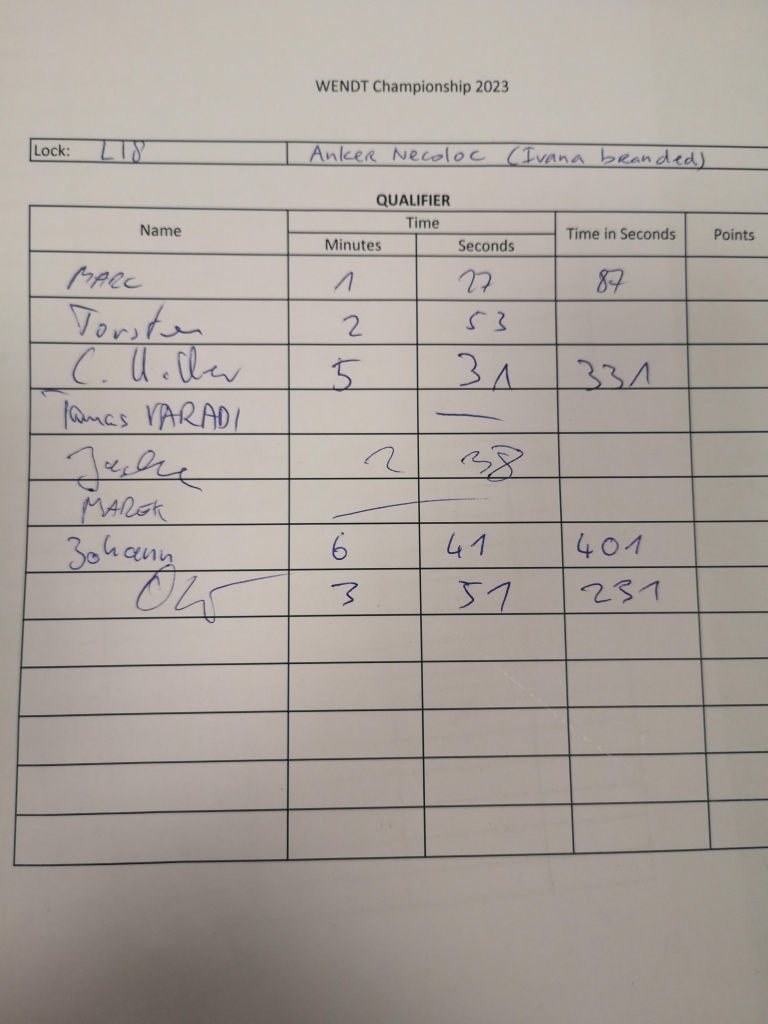 WENDT Championship 2023
Lock: L18 Anker Necoloc (Ivana branded)
QUALIFIER
Name Time Time in Seconds Points
Minutes Seconds
MARC 1 27 87
Torsten 2 53
C. 5 31 331
Tamas VARADI —
2 38
MAREK —
Johann 6 41 401
3 51 231